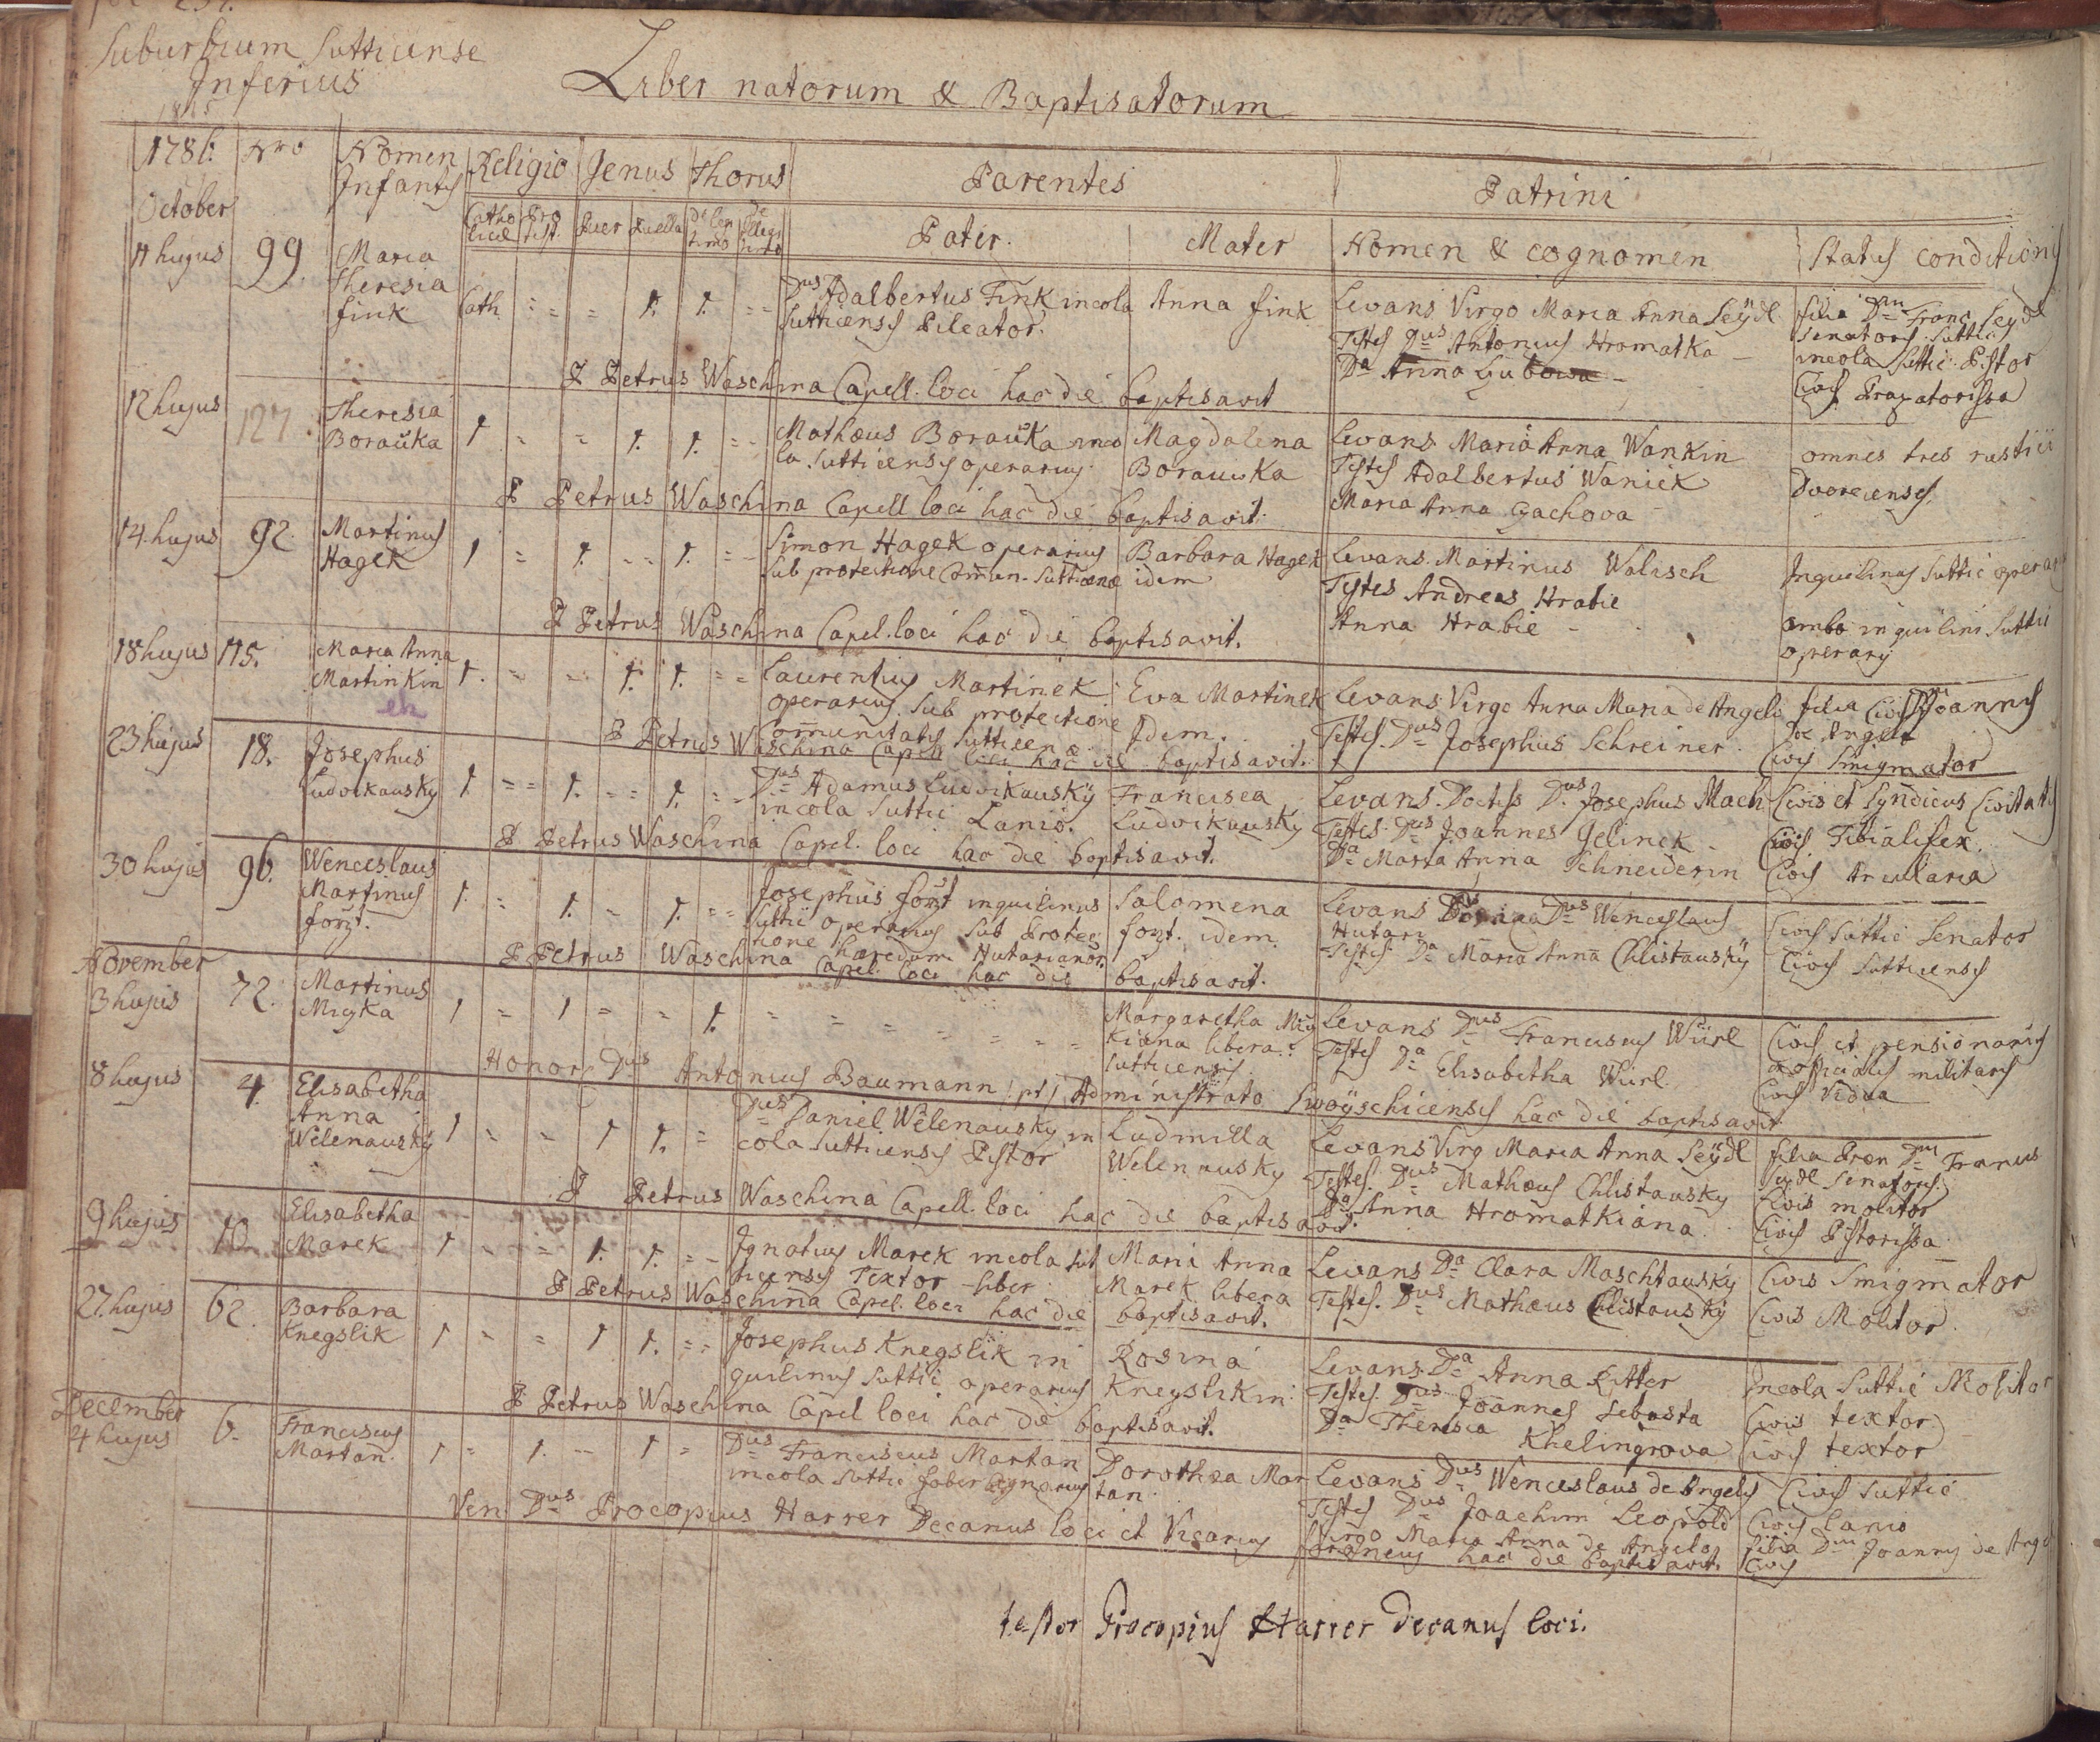 Suburbium Sutticense
Inferius
Liber natorum & Baptisatorum
1786. Nro Nomen Infantis Religio Genus Thorus Parentes Patrini
Catholicae Protest. Puer Puella De legitimo De Illegitimo Pater. Mater Nomen & cognomen Status conditionis
October
11 hujus 99. Maria Theresia Fink Cath. = = = 1. 1. = =
Dus Adalbertus Fink incola
Sutticensis Pileator.
Anna Fink
Levans Virgo Maria Anna Seÿdl
Testes Dus Antonius Hromatka
Da Anna
filia Dni Franc. Seydl
Senatoris Suttic
incola Suttic. Pistor
Civis
P Petrus Waschina Capell. loci hac die baptisavit
12 hujus 127. Theresia Borauka 1 = = 1. 1. = =
Mathæus Borauka inco
la Sutticensis operarius
Magdalena
Borauwka
Levans Maria Anna Wankin
Testes Adalbertus Waniek
Maria Anna Gachova
omnes tres rustici
Dvorecenses.
P Petrus Waschina Capell loci hac die baptisavit
14. hujus 92. Martinus Hagek 1 = 1. = = 1. = =
Simon Hagek operarius
sub protectione Comun. Sutticenæ
Barbara Hagek
idem
Levans. Martinus Walisch
Testes Andreas Hrabie
Anna Hrabie
Inquilinus Suttic operar
ambo inquilini Suttic
operarij
P Petrus Waschina Capel. loci hac die baptisavit.
18 hujus 115. Maria Anna Martinkin 1. = = 1. 1. = =
ek
Laurentius Martinek
operarius sub protectione
Comunitatis Sutticena
Eva Martinek
Idem.
Levans Virgo Anna Maria de Angelis
Testes. Dus Josephus Schreiner
filia Civis Joannis
de Angelis
Civis Smigmator
P Petrus Waschina Capell loci hac die baptisavit.
23 hujus 18. Josephus Ludvikausky 1 = = 1. = = 1. = =
Dus Adamus Ludvikauskÿ
incola Suttic Lanio.
Francisca
Ludvikausky
Levans. Doctiss Dus Josephus Mach
Testes. Dus Joannes Gelinek
Da Maria Anna Schneiderin
Civis et Syndicus Civitatis
Civis Tibialifex.
Civis Arcularia
P Petrus Waschina Capel. loci hac die baptisavit.
30 hujus 96. Wenceslaus Martinus 1. = 1. = 1. = =
Josephus inquilinus
Suttic operarius sub Protec
tione hæredum Hutarianor.
Salomena
idem.
Levans Dus Wenceslaus
Hutari
Testes. Da Maria Anna Chlistauskÿ
Civis Suttic Senator
Civis Sutticensis
P Petrus Waschina Capel. loci hac die baptisavit.
November
3 hujus 72. Martinus Migka 1 = 1 = = 1. = = = = = =
Margaretha Mig
kiana libera
Sutticensis
Levans Dus Franciscus Würl
Testes Da Elisabetha Würl.
Civis et pensionarius
officialis militaris
Civis Vidua
Honor. Dus Antonius Baumann pt Administrato Swoÿschicensis hac die baptisavit
8 hujus 4. Elisabetha Anna Welenauskÿ 1 = = 1 1. =
Dus Daniel Welenausky in
cola Sutticensis Pistor
Ludmilla
Welenausky
Levans Virg Maria Anna Seÿdl
Testes. Dus Mathæus Chlistausky
Da Anna Hromatkiana
filia Dni Francis
Seydl Senatoris
Civis molitor
Civis Pistorissa
P Petrus Waschina Capell. loci hac die baptisavit.
9 hujus 10. Elisabetha Marek 1 = = 1. 1. = =
Ignatius Marek incola Sut
ticensis Textor liber
Maria Anna
Marek libera
Levans Da Clara Maschtauskÿ
Testes. Dus Mathæus Chlistauskÿ
Civis Smigmator
Civis Molitor.
P Petrus Waschina Capel. loci hac die baptisavit.
27. hujus 62. Barbara Knegslik 1 = = 1 1. = =
Josephus Knegslik in
quilinus Suttic operarius
Rosina
Knegslikin
Levans. Da Anna Ritter
Testes. Dus Joannes Sebasta
Da Theresia Khelingrova
Incola Suttic Molitor
Civis textor
Civis textor
P Petrus Waschina Capel loci hac die baptisavit.
December
4 hujus 6. Franciscus Martan. 1 = 1. = 1 =
Dus Franciscus Martan
incola Suttic faber lignarius
Dorothea Mar
tan
Levans Dus Wenceslaus de Angelis
Testes Dus Joachim Leopold
Virgo Maria Anna de Angelis
Civis Suttic
Civis lanio
filia Dni Joannis de Angel
Civis
Ven. Dus Procopius Harrer Decanus loci et Vicarius foraneus hac die baptisavit.
testor Procopius Harrer Decanus loci.